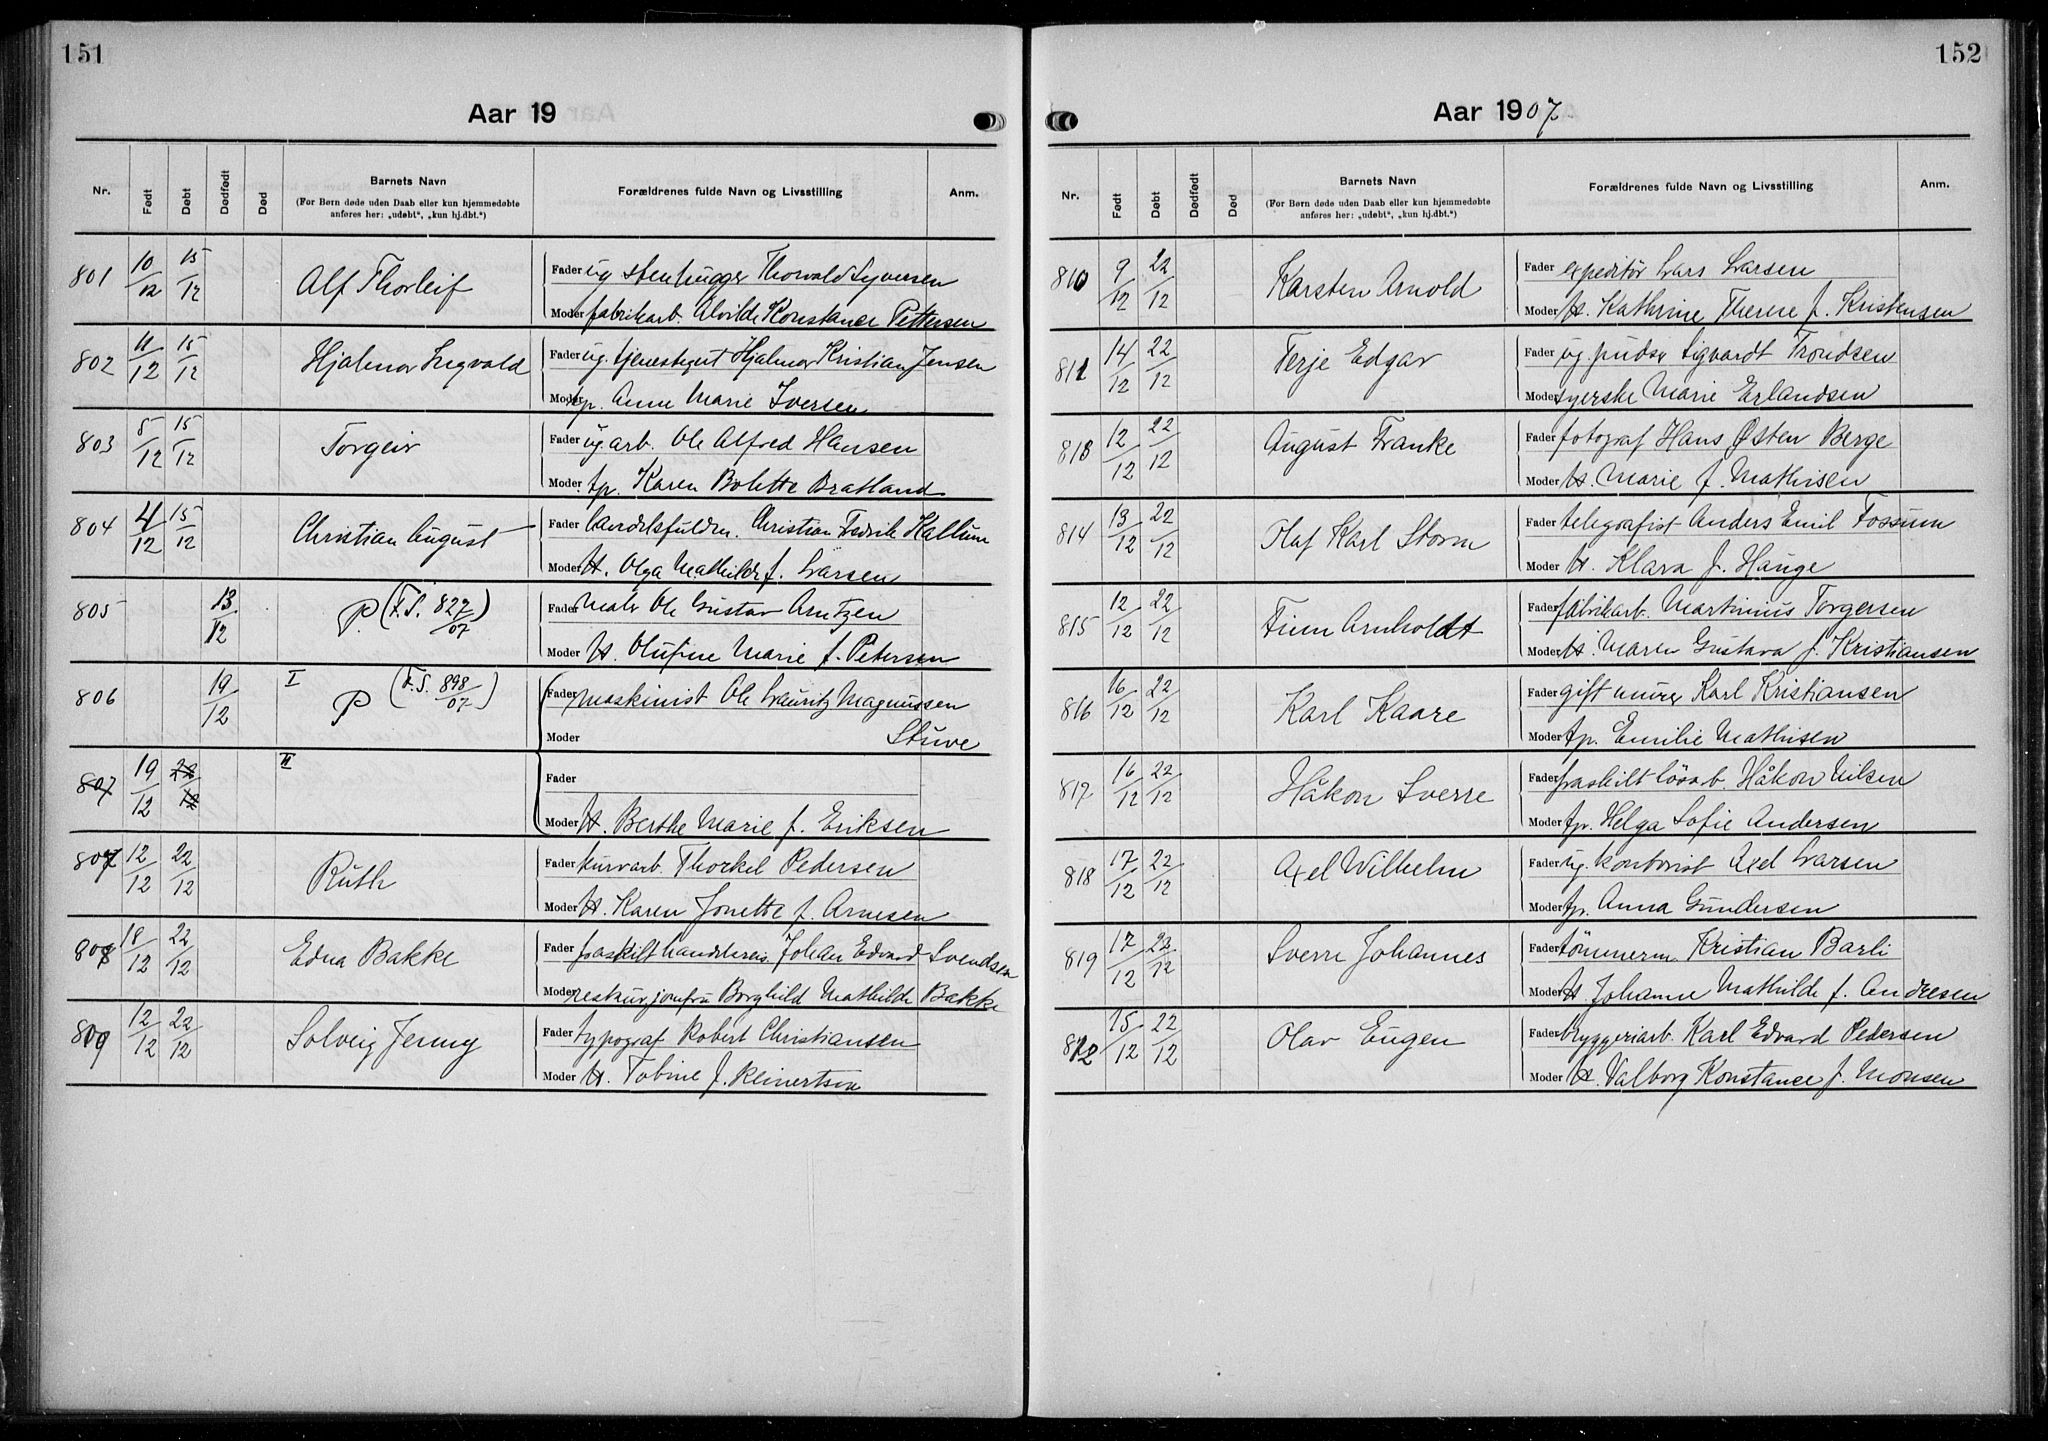 151
Aar 19
Nr. Født Døbt Dødfødt Død Barnets Navn Forældrenes fulde Navn og Livsstilling Anm.
(For Børn døde uden Daab eller kun hjemmedøbte
anføres her: „udøbt“, „kun hj.dbt.“)
801 10/12 15/12 Alf Thorleif Fader ug stenhugger Thorvald Syversen
Moder fabrikarb. Alvilde Konstance Pettersen
802 11/12 15/12 Hjalmar Sigvald Fader ug. tjenestegut Hjalmar Kristian Jensen
Moder tp. Anne Marie Iversen
803 5/12 15/12 Torgeir Fader ug arb. Ole Alfred Hansen
Moder tp. Karen Bolette Bratland
804 4/12 15/12 Christian August Fader handelsfuldm. Christian Fredrik Hallum
Moder H. Olga Mathilde f. Larsen
805 13/12 P (F.S. 827/07) Fader maler Ole Gustav Arntzen
Moder H. Olufine Marie f. Petersen
806 19/12 I P (F.S. 898/07) Fader maskinist Ole Lauritz Magnussen
Moder Stuve
807 19/12 22/12 II Fader
Moder H. Berthe Marie f. Eriksen
807 12/12 22/12 Ruth Fader kurvarb. Thorkel Pedersen
Moder H. Karen Jonette f. Arnesen
808 18/12 22/12 Edna Bakke Fader fraskilt handelsreis. Johan Edvard Svendsen
Moder restaur.jomfru Borghild Mathilde Bakke
809 12/12 22/12 Solveig Jenny Fader typograf Robert Christiansen
Moder H. Tobine f. Reinertsen
152
Aar 1907
Nr. Født Døbt Dødfødt Død Barnets Navn Forældrenes fulde Navn og Livsstilling Anm.
(For Børn døde uden Daab eller kun hjemmedøbte
anføres her: „udøbt“, „kun hj.dbt.“)
810 9/12 22/12 Karsten Arnold Fader expeditør Lars Larsen
Moder H. Kathrine Therese f. Kristensen
811 14/12 22/12 Terje Edgar Fader ug. pudser Sigvardt Trondsen
Moder syerske Marie Erlandsen
813 12/12 22/12 August Franke Fader fotograf Hans Østen Berge
Moder H. Marie f. Mathisen
814 13/12 22/12 Olaf Karl Storm Fader telegrafist Anders Emil Fossum
Moder H. Klara f. Hauge
815 12/12 22/12 Finn Arnholdt Fader fabrikarb. Martinius Torgersen
Moder H. Maren Gustava f. Kristiansen
816 16/12 22/12 Karl Kaare Fader gift murer Karl Kristiansen
Moder tp. Emilie Mathisen
817 16/12 22/12 Håkon Sverre Fader fraskilt løsarb. Håkon Nilsen
Moder tp. Helga Sofie Andersen
818 17/12 22/12 Axel Wilhelm Fader ug. kontorist Axel Larsen
Moder tp. Anna Gundersen
819 17/12 22/12 Sverre Johannes Fader tømmerm. Kristian Barli
Moder H. Johanne Mathilde f. Andresen
812 15/12 22/12 Olav Eugen Fader bryggeriarb. Karl Edvard Pedersen
Moder H. Valborg Konstance f. Monsen